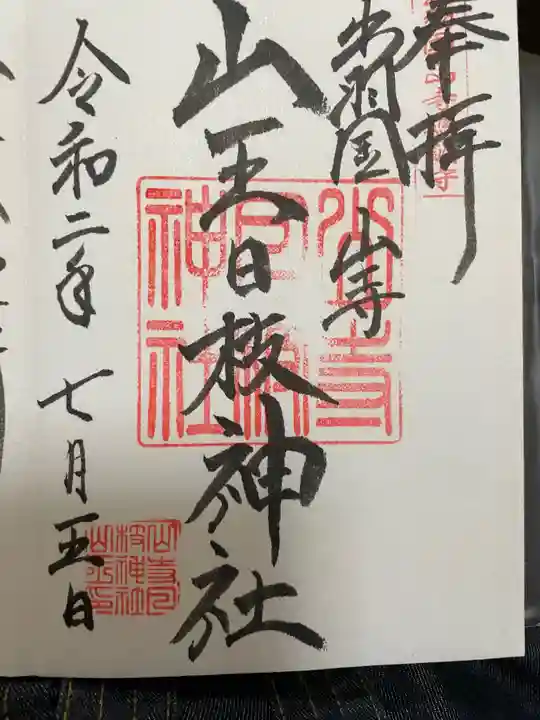 奉拝
出羽国 山寺
山王日枝神社
山寺日枝神社
令和二年 七月五日